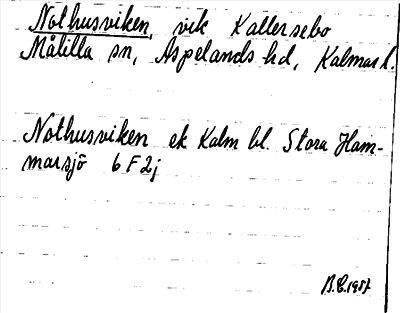 Nothusviken, vik Kallersebo
Målilla sn, Aspelands hd, Kalmar l.
Nothusviken ek Kalm bl. Stora Ham-
marsjö 6F2j
B.E. 1957